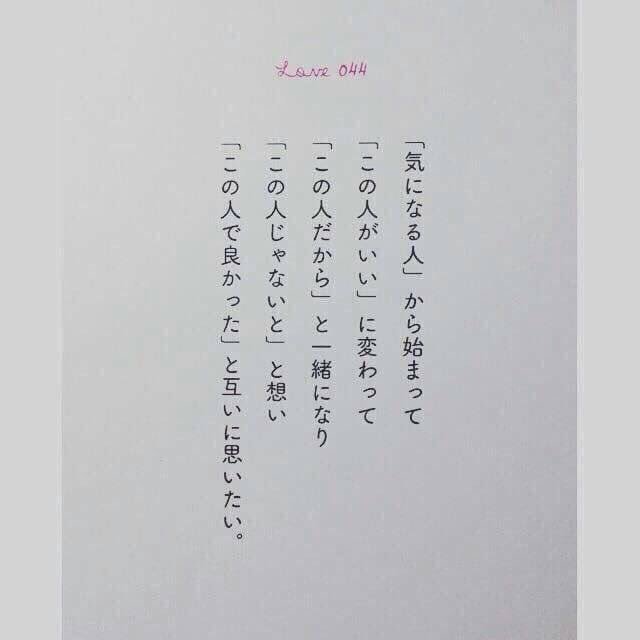 Love 044
「気になる人」から始まって
「この人がいい」に変わって
「この人だから」と一緒になり
「この人じゃないと」と想い
「この人で良かった」と互いに思いたい。